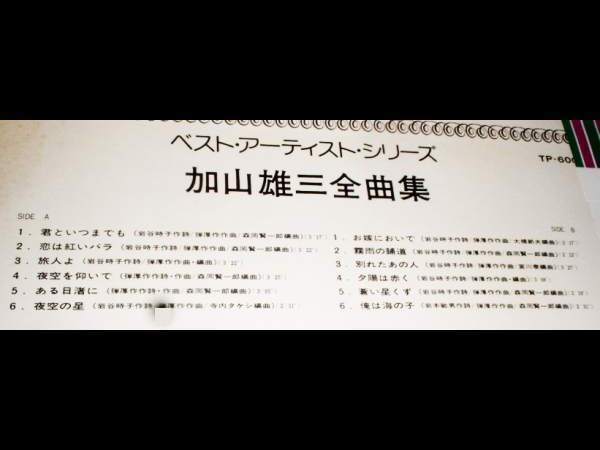 ベスト・アーティスト・シリーズ
TP-600
加山雄三全曲集
SIDE A
1. 君といつまでも (岩谷時子作詩/弾厚作作曲/森岡賢一郎編曲)
2. 恋は紅いバラ (岩谷時子作詩/弾厚作作曲/森岡賢一郎編曲)
3. 旅人よ (岩谷時子作詩/弾厚作作曲・編曲)
4. 夜空を仰いで (弾厚作作詩・作曲/森岡賢一郎編曲)
5. ある日渚に (弾厚作作詩・作曲/森岡賢一郎編曲)
6. 夜空の星 (岩谷時子作詩/弾厚作作曲/寺内タケシ編曲)
SIDE B
1. お嫁において (岩谷時子作詩/弾厚作作曲/大橋節夫編曲)
2. 霧雨の舗道 (岩谷時子作詩/弾厚作作曲/森岡賢一郎編曲)
3. 別れたあの人 (岩谷時子作詩/弾厚作作曲)
4. 夕陽は赤く (岩谷時子作詩/弾厚作作曲・編曲)
5. 蒼い星くず (岩谷時子作詩/弾厚作作曲/森岡賢一郎編曲)
6. 俺は海の子 (弾厚作作曲/森岡賢一郎編曲)